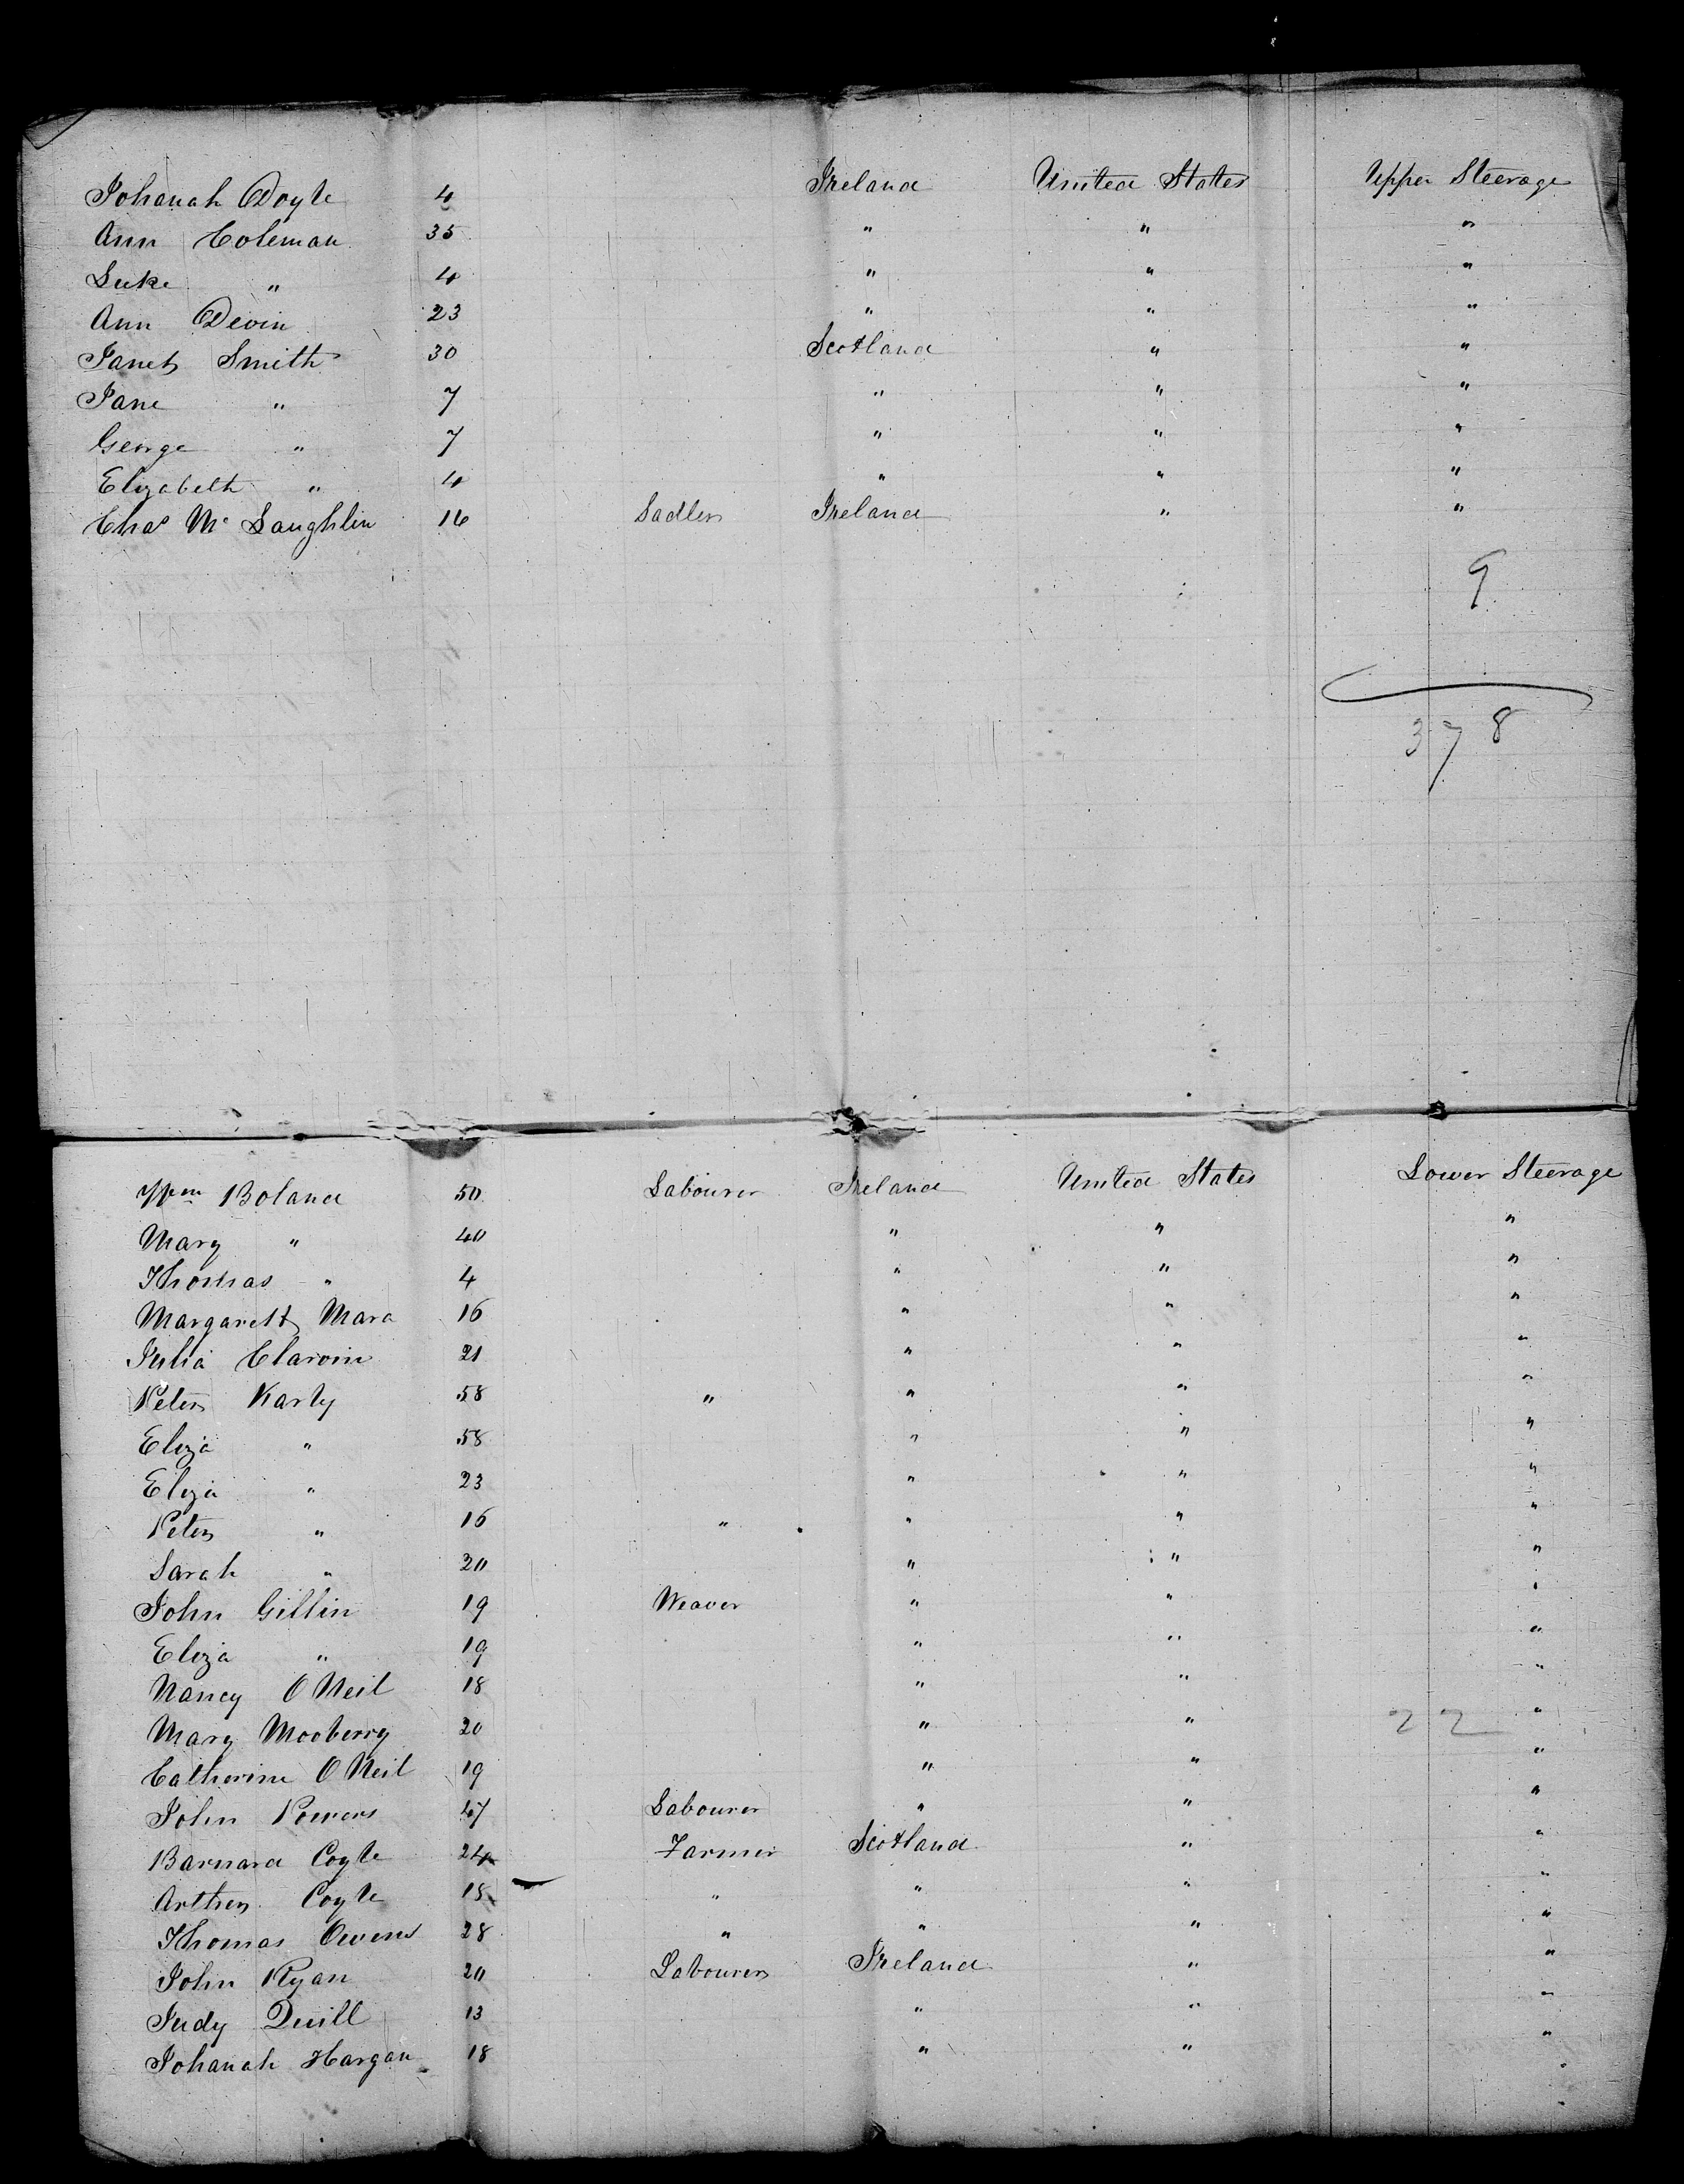 Johanah Doyle 4 Ireland United States Upper Steerage
Ann Coleman 35 " " "
Luke " 4 " " "
Ann Devin 23 " " "
Janet Smith 30 Scotland " "
Jane " 7 " " "
George " 7 " " "
Elizabeth " 4 " " "
Chas Mc Laughlin 16 Sadler Ireland " "
9
378
Wm Boland 50 Labourer Ireland United States Lower Steerage
Mary " 40 " " "
Thomas " 4 " " "
Margarett Mara 16 " " "
Julia 21 " " "
Peter Karty 58 " " " "
Eliza " 58 " " "
Eliza " 23 " " "
Peter " 16 " " " "
Sarah " 20 " " "
John Gillin 19 Weaver " " "
Eliza " 19 " " "
Nancy O Neil 18 " " "
Mary Mooberry 20 " " 22 "
Catherine O Neil 19 " " "
John Powers 47 Labourer " " "
Barnard Coyle 24 Farmer Scotland " "
Arthur Coyle 18 " " " "
Thomas Owens 28 " " " "
John Ryan 20 Labourer Ireland " "
Judy Quill 13 " " "
Johanah Hargan 18 " " "